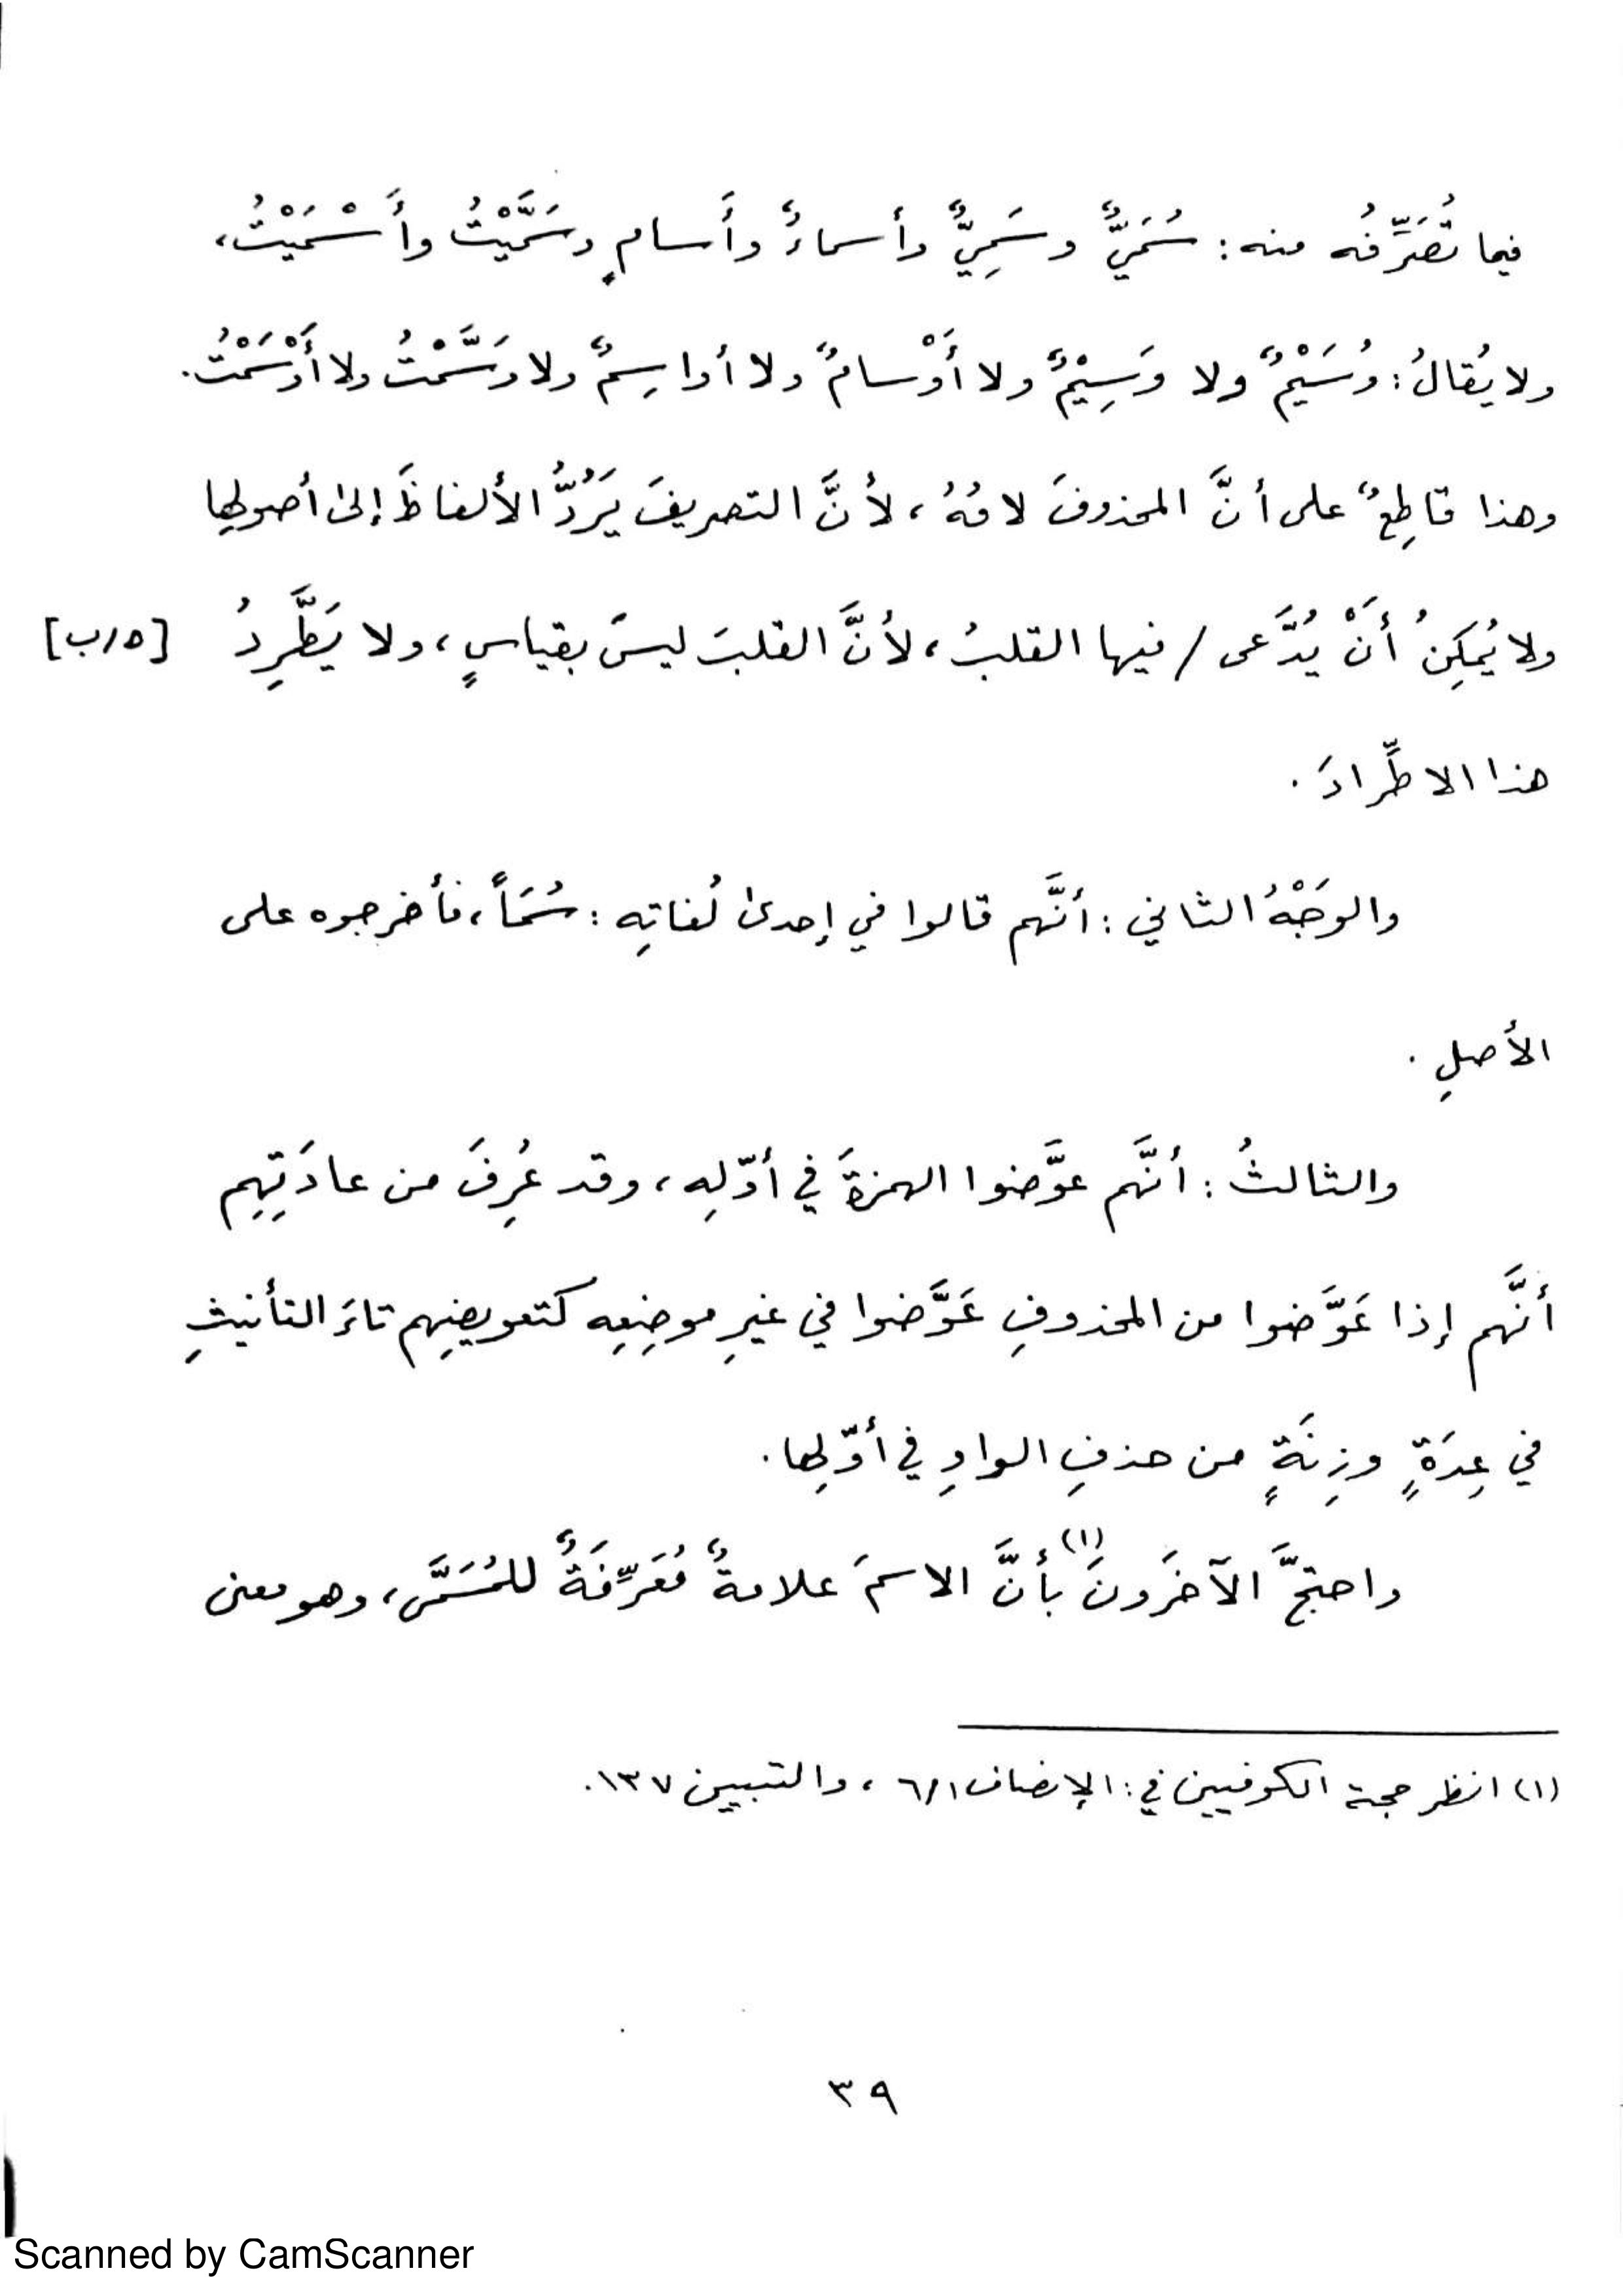 فيما تُصَرِّفُه منه: سُمَيٌّ وسَمِيٌّ وأسماءٌ وأَسامٍ وسَمَّيْتُ وأَسْمَيْتُ،
ولا يُقالُ: وُسَيْمٌ ولا وَسِيْمٌ ولا أَوْسامٌ ولا أواسِمٌ ولا وَسَّمْتُ ولا أَوْسَمْتُ.
وهذا قاطِعٌ على أنَّ المحذوفَ لامُهُ، لأنَّ التصريفَ يَرُدُّ الألفاظَ إلىٰ أصولِها
ولا يُمكِنُ أَنْ يُدَّعى / فيها القلبُ، لأنَّ القلبَ ليسَ بقياسٍ، ولا يَطَّرِدُ [٥/ب]
هذا الاطِّرادَ.
والوَجْهُ الثاني: أنَّهم قالوا في إحدىٰ لُغاتِهِ: سُمَاً، فأخرجوه على
الأصلِ.
والثالثُ: أنَّهم عوَّضوا الهمزةَ في أوّلِهِ، وقد عُرِفَ من عادَتِهِم
أنَّهم إذا عَوَّضوا من المحذوفِ عَوَّضوا في غيرِ موضِعِه كتعويضِهم تاءَ التأنيثِ
في عِدَةٍ وزِنَةٍ من حذفِ الواوِ في أوّلِها.
واحتجَّ الآخَرونَ(١) بأنَّ الاسمَ علامةٌ مُعَرِّفَةٌ للمُسَمَّى، وهو معنى
(١) انظر حجة الكوفيين في: الإنصاف ٦/١، والتبيين ١٣٧.
٣٩
Scanned by CamScanner